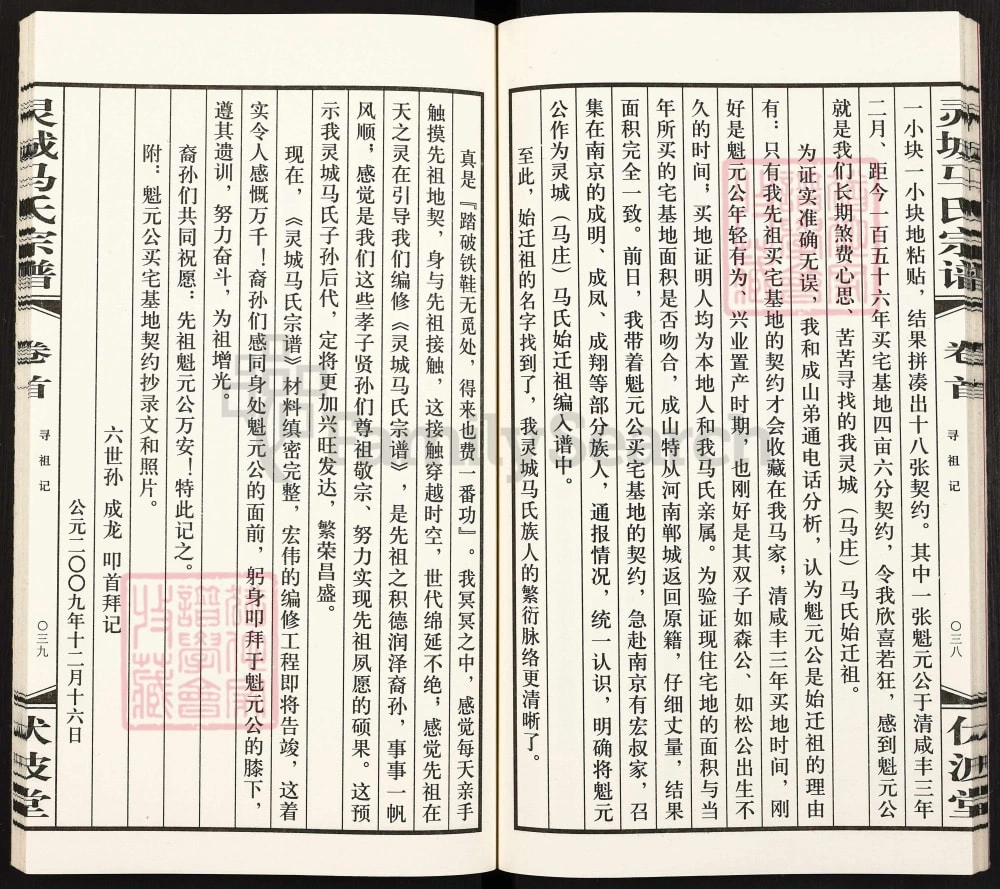 灵城马氏宗谱
卷首
寻祖记
〇三八
伏波堂
一小块一小块地粘贴，结果拼凑出十八张契约。其中一张魁元公于清咸丰三年
二月、距今一百五十六年买宅基地四亩六分契约，令我欣喜若狂，感到魁元公
就是我们长期煞费心思、苦苦寻找的我灵城（马庄）马氏始迁祖。
为证实准确无误，我和成山弟通电话分析，认为魁元公是始迁祖的理由
有：只有我先祖买宅基地的契约才会收藏在我马家；清咸丰三年买地时间，刚
好是魁元公年轻有为、兴业置产时期，也刚好是其双子如森公、如松公出生不
久的时间；买地证明人均为本地人和我马氏亲属。为验证现住宅地的面积与当
年所买的宅基地面积是否吻合，成山特从河南郸城返回原籍，仔细丈量，结果
面积完全一致。前日，我带着魁元公买宅基地的契约，急赴南京有宏叔家，召
集在南京的成明、成凤、成翔等部分族人，通报情况，统一认识，明确将魁元
公作为灵城（马庄）马氏始迁祖编入谱中。
至此，始迁祖的名字找到了，我灵城马氏族人的繁衍脉络更清晰了。
真是『踏破铁鞋无觅处，得来也费一番功』。我冥冥之中，感觉每天亲手
触摸先祖地契，身与先祖接触，这接触穿越时空，世代绵延不绝；感觉先祖在
天之灵在引导我们编修《灵城马氏宗谱》，是先祖之积德润泽裔孙，事事一帆
风顺；感觉是我们这些孝子贤孙们尊祖敬宗、努力实现先祖夙愿的硕果。这预
示我灵城马氏子孙后代，定将更加兴旺发达，繁荣昌盛。
现在，《灵城马氏宗谱》材料缜密完整，宏伟的编修工程即将告竣，这着
实令人感慨万千！裔孙们感同身处魁元公的面前，躬身叩拜于魁元公的膝下，
遵其遗训，努力奋斗，为祖增光。
裔孙们共同祝愿：先祖魁元公万安！特此记之。
附：魁元公买宅基地契约抄录文和照片。
六世孙 成龙 叩首拜记
公元二〇〇九年十二月十六日
灵城马氏宗谱
卷首
寻祖记
〇三九
伏波堂
FamilySearch